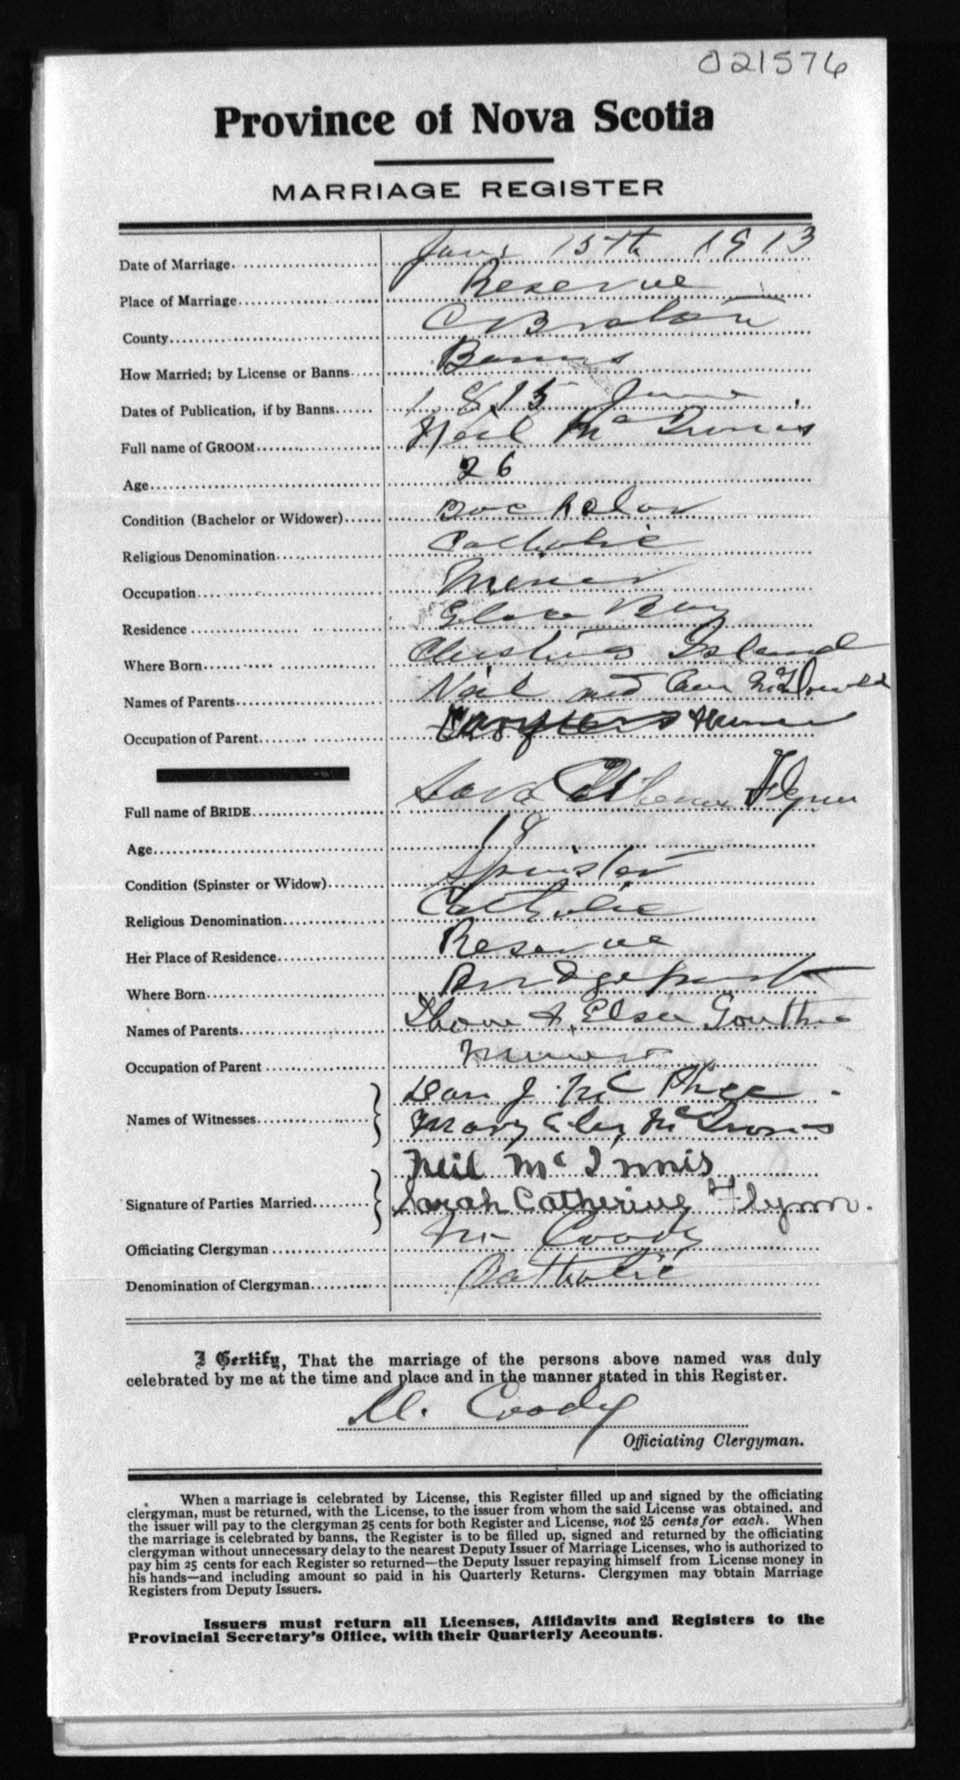 021576
Province of Nova Scotia
MARRIAGE REGISTER
Date of Marriage 15th 1913
Place of Marriage Reserve
County C Breton
How Married; by License or Banns Banns
Dates of Publication, if by Banns 1, 8, 15 June
Full name of GROOM Neil McInnis
Age 26
Condition (Bachelor or Widower) Bachelor
Religious Denomination Catholic
Occupation Miner
Residence Glace Bay
Where Born Christmas Island
Names of Parents Neil and
Occupation of Parent
Full name of BRIDE Sara Flynn
Age 18
Condition (Spinster or Widow) Spinster
Religious Denomination Catholic
Her Place of Residence Reserve
Where Born Bridgeport
Names of Parents
Occupation of Parent Miner
Names of Witnesses Dan J. McPhee
Mary McInnis
Neil McInnis
Signature of Parties Married Sarah Catherine Flynn.
Officiating Clergyman Coady
Denomination of Clergyman Catholic
I Certify, That the marriage of the persons above named was duly
celebrated by me at the time and place and in the manner stated in this Register.
M. Coady
Officiating Clergyman.
When a marriage is celebrated by License, this Register filled up and signed by the officiating
clergyman, must be returned, with the License, to the issuer from whom the said License was obtained, and
the issuer will pay to the clergyman 25 cents for both Register and License, not 25 cents for each. When
the marriage is celebrated by banns, the Register is to be filled up, signed and returned by the officiating
clergyman without unnecessary delay to the nearest Deputy Issuer of Marriage Licenses, who is authorized to
pay him 25 cents for each Register so returned—the Deputy Issuer repaying himself from License money in
his hands—and including amount so paid in his Quarterly Returns. Clergymen may obtain Marriage
Registers from Deputy Issuers.
Issuers must return all Licenses, Affidavits and Registers to the
Provincial Secretary's Office, with their Quarterly Accounts.